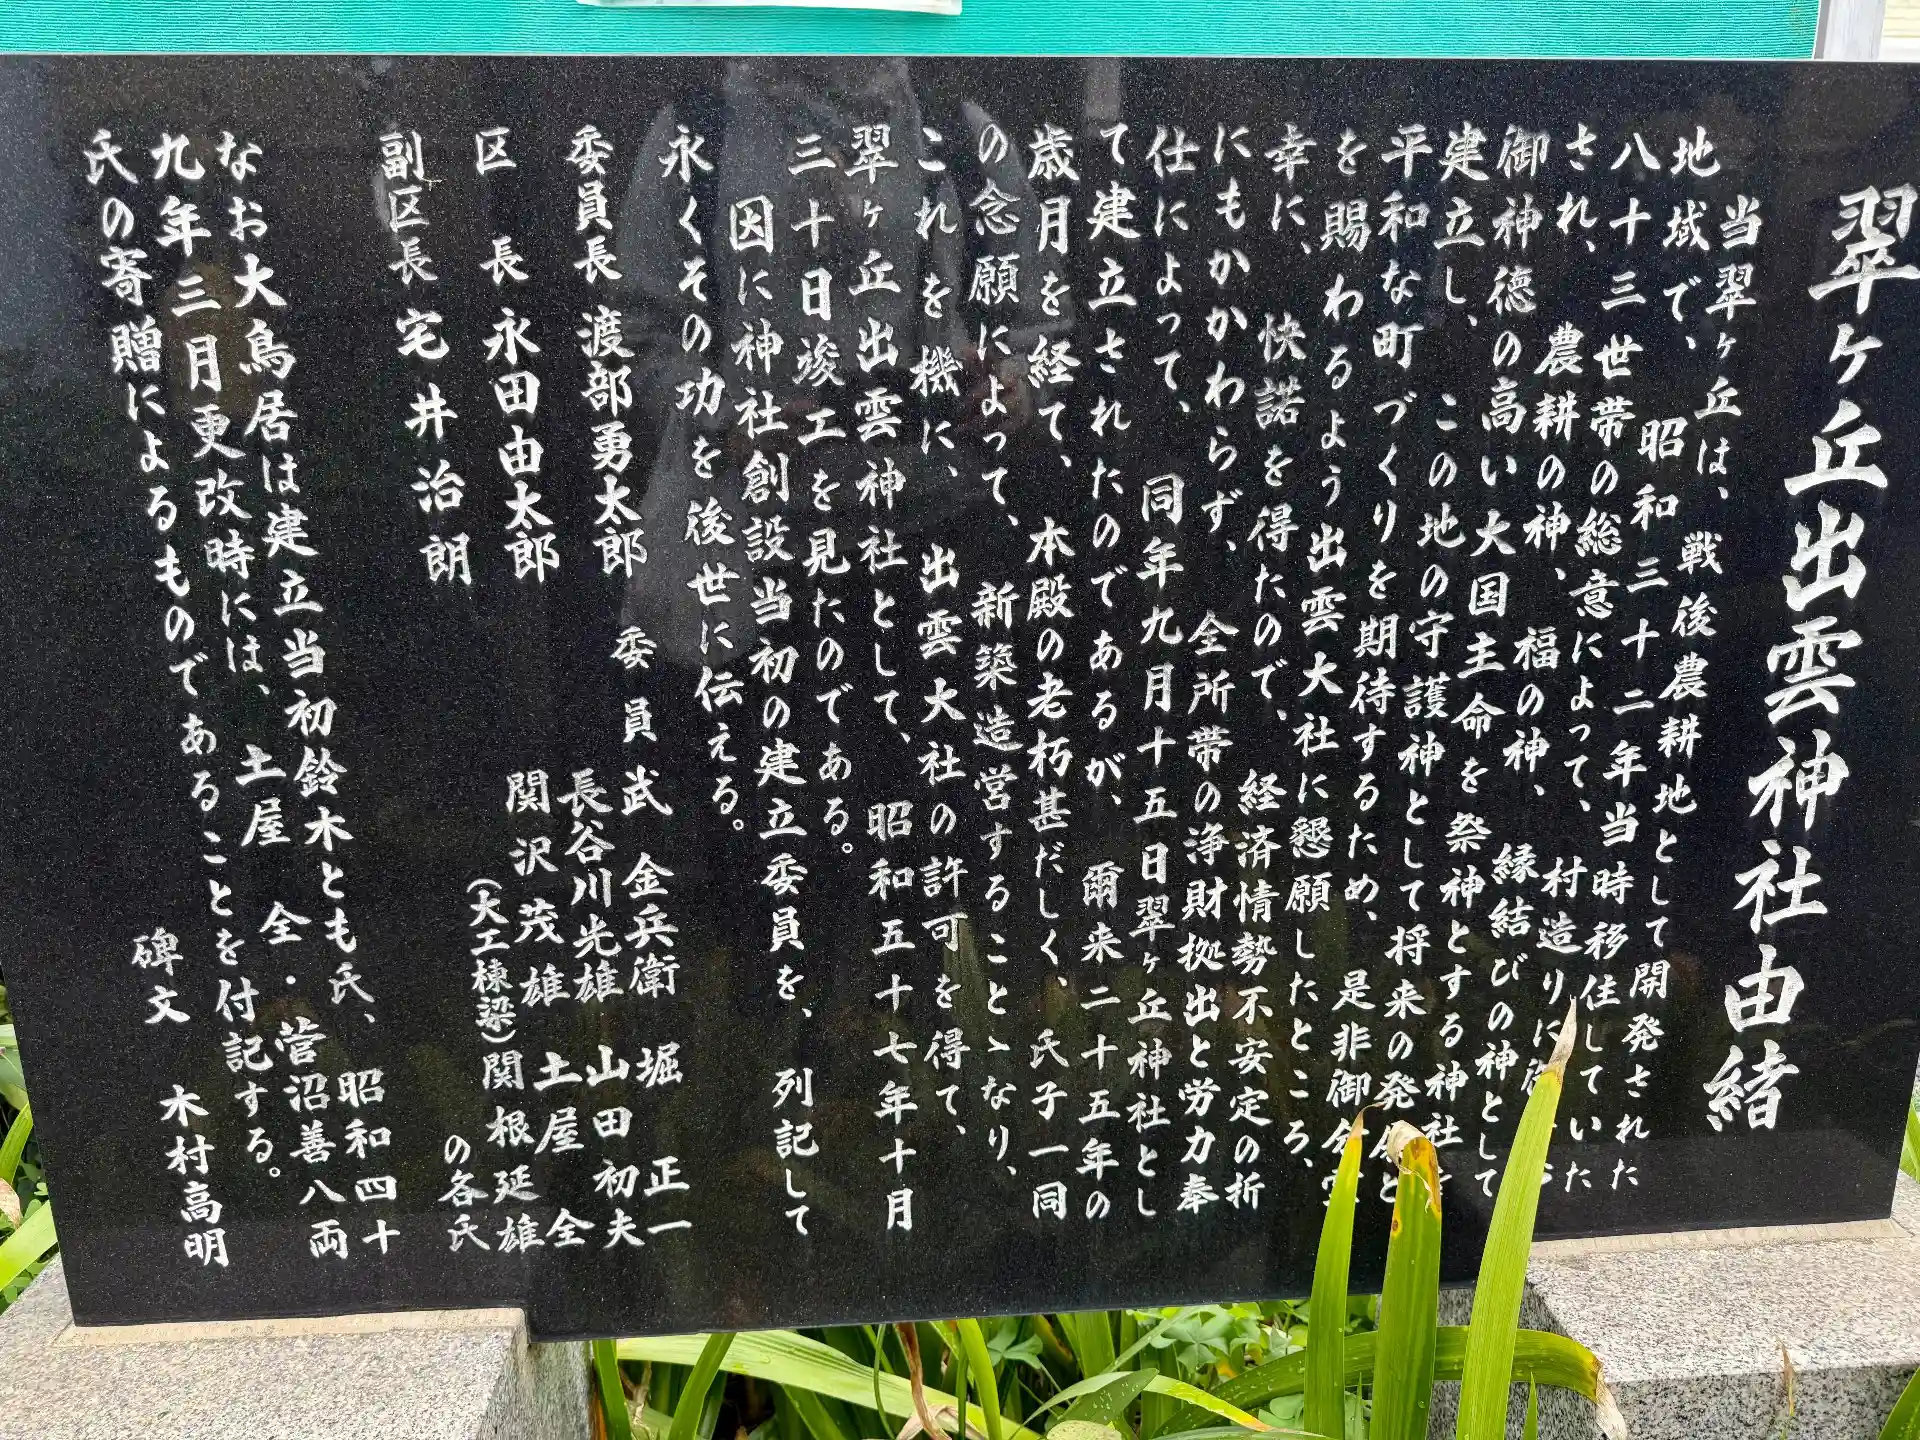 翠ヶ丘出雲神社由緒
当翠ヶ丘は、戦後農耕地として開発された
地域で、昭和三十二年当時移住していた
八十三世帯の総意によって、村造りに
され、農耕の神、福の神、縁結びの神として
御神徳の高い大国主命を祭神とする神社を
建立し、この地の守護神として将来の発展と
平和な町づくりを期待するため、是非御分霊
を賜わるよう出雲大社に懇願したところ、
幸に、快諾を得たので、経済情勢不安定の折
にもかかわらず、全所帯の浄財拠出と労力奉
仕によって、同年九月十五日翠ヶ丘神社とし
て建立されたのであるが、爾来二十五年の
歳月を経て、本殿の老朽甚だしく、氏子一同
の念願によって、新築造営することゝなり、
これを機に、出雲大社の許可を得て、
翠ヶ丘出雲神社として、昭和五十七年十月
三十日竣工を見たのである。
因に神社創設当初の建立委員を、列記して
永くその功を後世に伝える。
委員長 渡部勇太郎 委員 武 金兵衛 堀 正一
長谷川光雄 山田初夫
区長 永田由太郎 関沢茂雄 土屋 全
(大工棟梁)関根延雄
副区長 宅井治朗 の各氏
なお大鳥居は建立当初鈴木とも氏、昭和四十
九年三月更改時には、土屋 全・菅沼善八両
氏の寄贈によるものであることを付記する。
碑文 木村高明